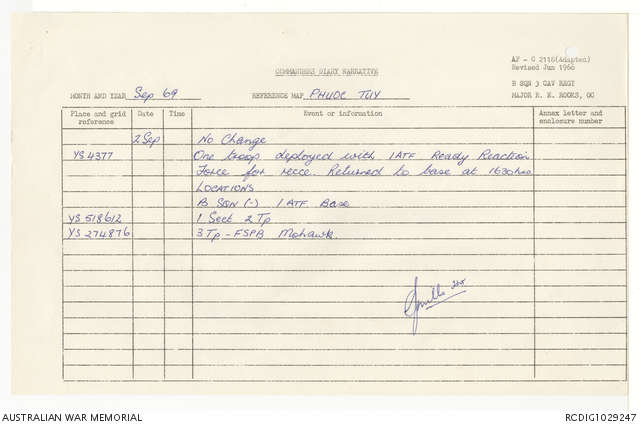 AF - C 2118(Adapted)
Revised Jun 1966
COMMANDERS DIARY NARRATIVE
B SQN 3 CAV REGT
MONTH AND YEAR Sep 69 REFERENCE MAP PHUOC TUY MAJOR R. N. ROOKS, OC
Place and grid reference Date Time Event or information Annex letter and enclosure number
2 Sep No Change
YS 4377 One troop deployed with 1ATF Ready Reaction
Force for recce. Returned to base at 1630 hrs
LOCATIONS
B SQN (-) 1 ATF Base
YS 518612 1 Sect 2 Tp
YS 274876 3 Tp - FSPB Mohawk
AUSTRALIAN WAR MEMORIAL RCDIG1029247